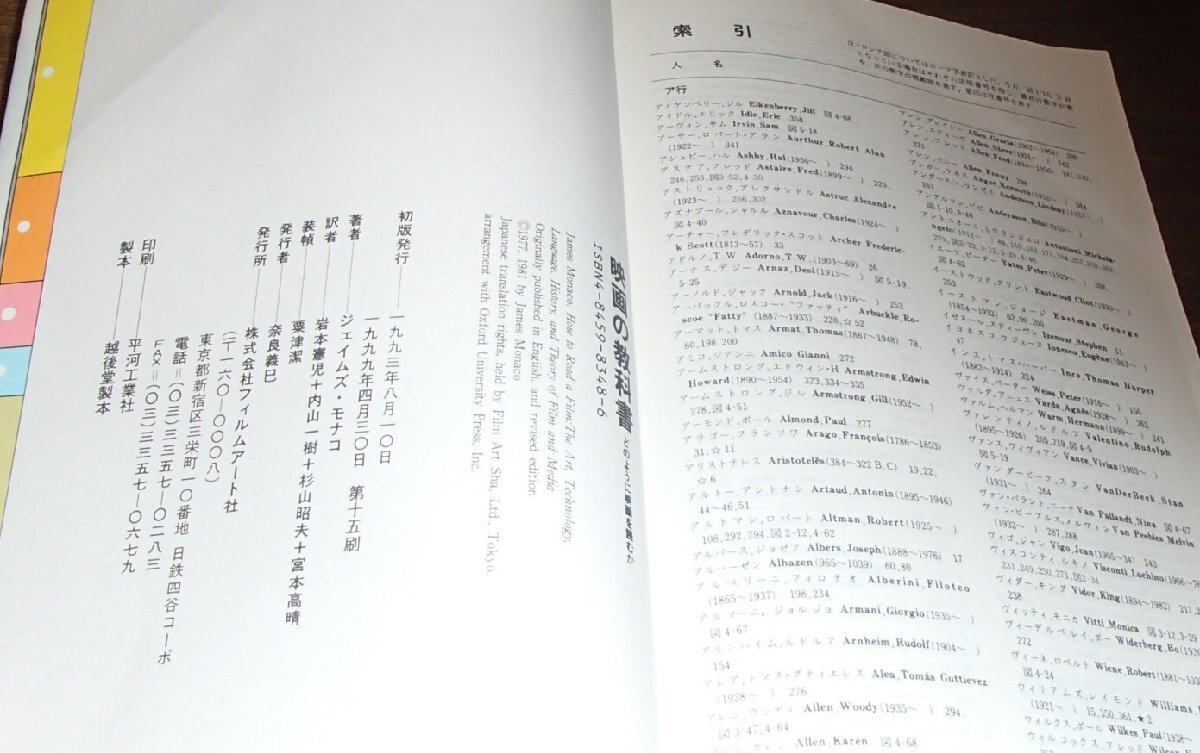 映画の教科書 どのように映画を読むか
ISBN4-8459-8348-6
James Monaco, How to Read a Film: The Art, Technology,
Language, History, and Theory of Film and Media
Originally published in English, and revised edition
©1977, 1981 by James Monaco
Japanese translation rights, held by Film Art Sha, Ltd., Tokyo
arrangement with Oxford University Press, Inc.
初版発行――一九九三年八月一〇日
一九九九年四月三〇日 第十五刷
著者――ジェイムズ・モナコ
訳者――岩本憲児+内山一樹+杉山昭夫+宮本高晴
装幀――粟津潔
発行者――奈良義巳
発行所――株式会社フィルムアート社
(〒一六〇―〇〇〇八)
東京都新宿区三栄町一〇番地 日鉄四谷コーポ
電話=(〇三)三三五七―〇二八三
FAX=(〇三)三三五七―〇六七九
印刷――平河工業社
製本――越後堂製本
索 引
人 名
ア行
アイケンベリー,ジル Eikenberry, Jill 図4-68
アイドル,エリック Idle, Eric 358
アーヴィン,サム Irvin, Sam 図5-18
アーサー,ロバート・アラン Aurthur, Robert Alan
(1922〜 ) 341
アシュビー,ハル Ashby, Hal(1936〜 ) 294
アステア,フレッド Astaire, Fred(1899〜 ) 229,
246,253,図3-52,4-30
アストリュック,アレクサンドル Astruc, Alexandre
(1923〜 ) 256,302
アズナブール,シャルル Aznavour, Charles(1924〜 )
図4-40
アーチャー,フレデリック・スコット Archer, Frederic-
k Scott(1813〜57) 33
アドルノ,T.W. Adorno, T.W.(1903〜69) 26
アーナス,デジー Arnaz, Desi(1915〜 ) 図5-19,
5-25
アーノルド,ジャック Arnold, Jack(1916〜 ) 253
アーバックル,ロスコー・"ファッティ" Arbuckle, Ro-
scoe "Fatty"(1887〜1933) 228,☆52
アーマット,トマス Armat, Thomas(1867〜1948) 78,
60,198,200
アミコ,ジアンニ Amico, Gianni 272
アームストロング,エドウィン・H Armstrong, Edwin
Howard(1890〜1954) 323,334〜335
アームストロング,ジル Armstrong, Gill(1952〜 )
278,図4-51
アーモンド,ポール Almond, Paul 277
アラゴー,フランソワ Arago, François(1786〜1853)
31,☆11
アリストテレス Aristotelēs(384〜322 B.C) 19,22,
☆6
アルトー・アントナン Artaud, Antonin(1895〜1946)
44〜46,51
アルトマン,ロバート Altman, Robert(1925〜 )
108,292,294,図2-12,4-62
アルバース,ジョゼフ Albers, Joseph(1888〜1976) 17
アルハーゼン Alhazen(965〜1039) 60,80
アルベリーニ,フィロテオ Alberini, Filoteo
(1865〜1937) 198,234
アルマーニ,ジョルジョ Armani, Giorgio(1935〜 )
図4-67
アルンハイム,ルドルフ Arnheim, Rudolf(1904〜 )
154
アレア,トマス・グティエレス Alea, Tomás Guttievez
(1928〜 ) 276
アレン,ウッディ Allen, Woody(1935〜 ) 294,
図3-47,4-64
アレン,カレン Allen, Karen 図4-68
アレン,グレイシー Allen, Gracie
アレン,スティーヴ Allen, Steve(1921〜 ) 142
アレン,フレッド Allen, Fred(1894〜1956)
331
アレン,ペニー Allen, Penny 298
アンガー,ケネス Anger, Kenneth
アンダースン,リンゼイ Anderson, Lindsay
267
アンデルソン,ビビ Andersson, Bibi
図1-10,3-48
アントニオーニ,ミケランジェロ Antonioni, Michela-
イェーツ,ピーター Yates, Peter(1929〜
図4-62
イーストウッド,クリント Eastwood, Clint(1930〜
253
イーストマン,ジョージ Eastman, George
(1854〜1932) 62,90,200
イゼヌール,スティーヴン Izenour, Stephen 51
イヨネスコ,ウジェーヌ Ionesco, Eugène(1912〜
47
インス,トマス・ハーパー Ince, Thomas Harper
(1882〜1924) 224
ヴァイス,ペーター Weiss, Peter(1916〜 )
ヴァルダ,アーニェス Varda, Agnès(1928〜 ) 261
ヴァルム,ヘルマン Warm, Hermann(1889〜 ) 241
ヴァレンティノ,ルドルフ Valentino, Rudolph
(1895〜1926) 205,219,図4-9
ヴァンス,ヴィヴィアン Vance, Vivian(1903〜 )
図5-19
ヴァンダービーク,スタン VanDerBeek, Stan
(1931〜 ) 264
ヴァン・パラント,ニーナ Van Pallandt, Nina 図4-67
ヴァン・ピーブルス,メルヴィン Van Peebles, Melvin
(1932〜 ) 287,288
ヴィゴ,ジャン Vigo, Jean(1905〜34) 243
ヴィスコンティ,ルキノ Visconti, Luchino(1906〜76
231,249,250,271,図2-34
ヴィダー,キング Vidor, King(1894〜1982) 217,2
238
ヴィッティ,モニカ Vitti, Monica 図3-12,3-29
ヴィーデルベルイ,ボー Widerberg, Bo(1930
272
ヴィーネ,ロベルト Wiene, Robert(1881〜193
図4-24
ウィリアムズ,レイモンド Williams,
(1921〜 ) 15,350,361,★2
ウィルクス,ポール Wilkes, Paul(1938〜
ウィルコックス,フレッド Wilcox